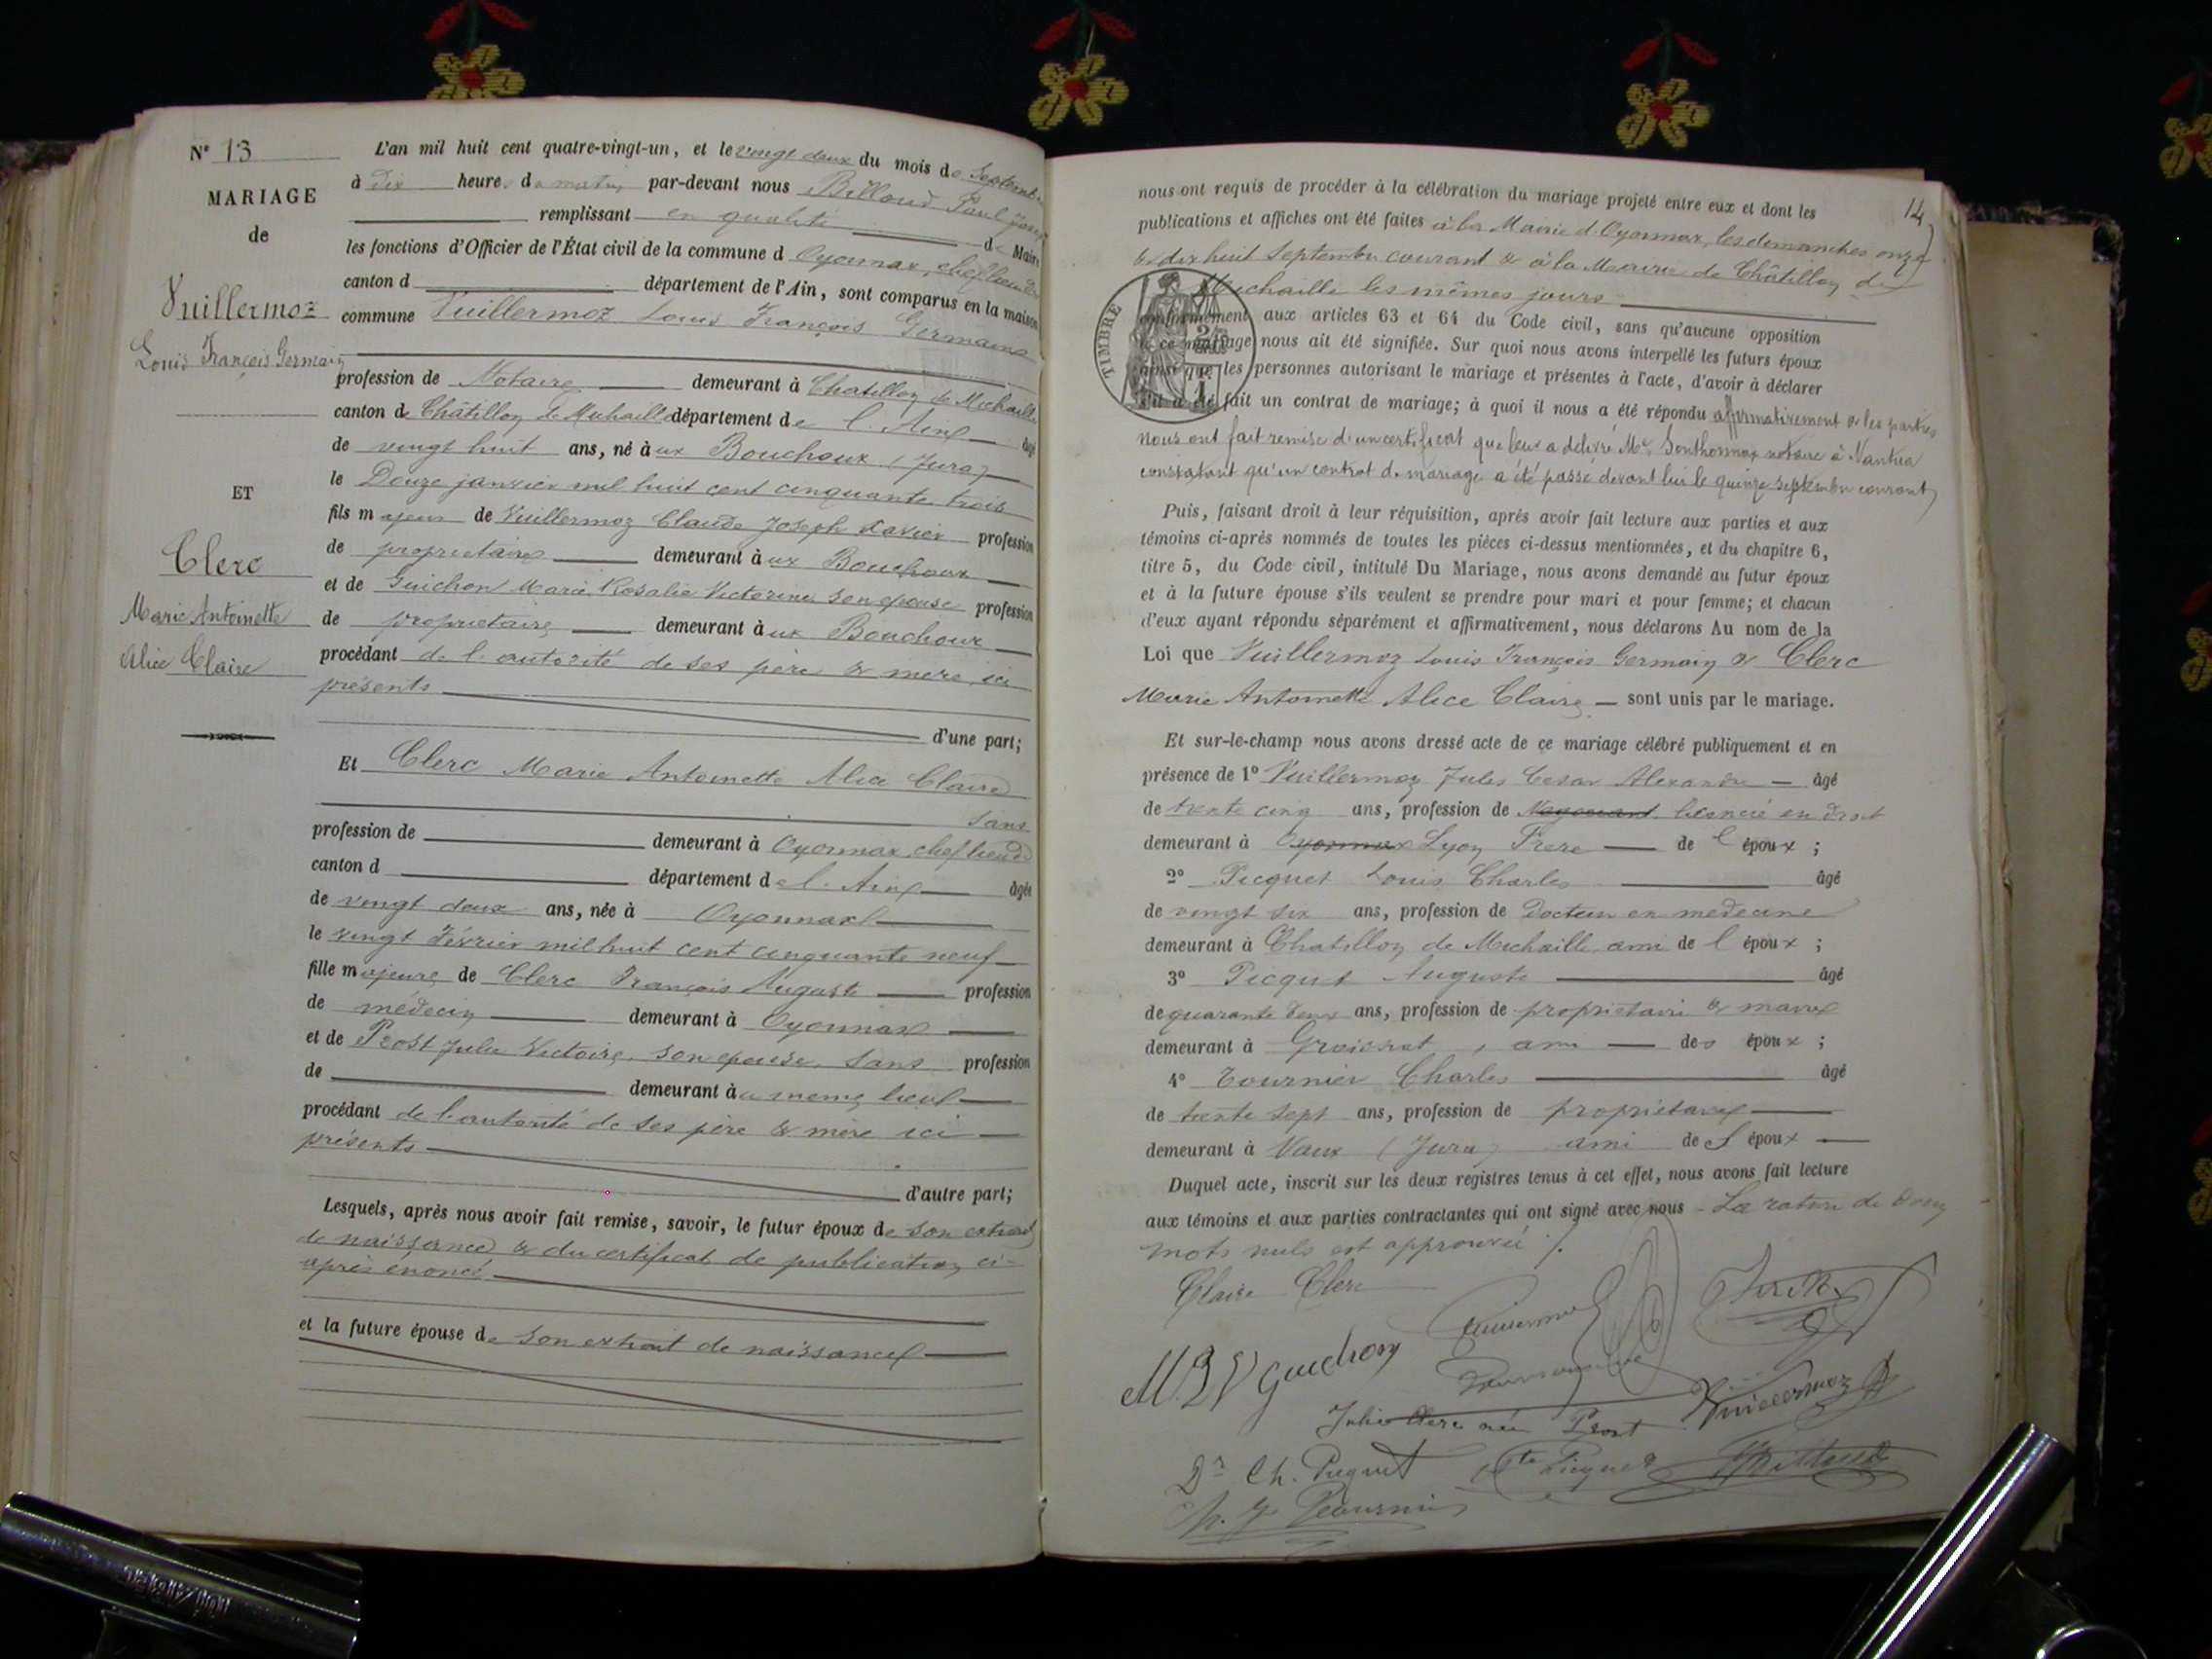 N° 13
MARIAGE
de
Vuillermoz
Louis François Germain
ET
Clerc
Marie Antoinette
Alice Claire
L'an mil huit cent quatre-vingt-un, et le vingt deux du mois de Septembre
à dix heures du matin par-devant nous Billoud Paul
remplissant en qualité de Maire
les fonctions d'Officier de l'État civil de la commune d Oyonnax, chef lieu de
canton d département de l'Ain, sont comparus en la maison
commune Vuillermoz Louis François Germain
profession de Notaire demeurant à Chatillon de Michaille
canton de Châtillon de Michaille département de l'Ain âgé
de vingt huit ans, né aux Bouchoux (Jura)
le Douze janvier mil huit cent cinquante trois
fils majeur de Vuillermoz Claude Joseph Xavier profession
de propriétaire demeurant aux Bouchoux
et de Guichon Marie Rosalie Victorine son épouse profession
de propriétaire demeurant aux Bouchoux
procédant de l'autorité de ses père & mère, ici
présents
d'une part;
Et Clerc Marie Antoinette Alice Claire
Sans
profession de demeurant à Oyonnax, chef lieu de
canton d département de l'Ain âgée
de vingt deux ans, née à Oyonnax
le vingt février mil huit cent cinquante neuf
fille majeure de Clerc François Auguste profession
de médecin demeurant à Oyonnax
et de Prost Julie Victoire, son épouse, Sans profession
de demeurant au même lieu
procédant de l'autorité de ses père & mère ici
présents
d'autre part;
Lesquels, après nous avoir fait remise, savoir, le futur époux de son extrait
de naissance & du certificat de publication ci-
après énoncé
et la future épouse de son extrait de naissance
14
nous ont requis de procéder à la célébration du mariage projeté entre eux et dont les
publications et affiches ont été faites à la Mairie d'Oyonnax, les dimanches onze
& dix huit Septembre courant & à la Mairie de Châtillon de
Michaille les mêmes jours
TIMBRE
conformément aux articles 63 et 64 du Code civil, sans qu'aucune opposition
à ce mariage nous ait été signifiée. Sur quoi nous avons interpellé les futurs époux
ainsi que les personnes autorisant le mariage et présentes à l'acte, d'avoir à déclarer
s'il a été fait un contrat de mariage; à quoi il nous a été répondu affirmativement & les parties
nous ont fait remise d'un certificat que leur a délivré Me Sonthonnax notaire à Nantua
constatant qu'un contrat de mariage a été passé devant lui le quinze septembre courant
Puis, faisant droit à leur réquisition, après avoir fait lecture aux parties et aux
témoins ci-après nommés de toutes les pièces ci-dessus mentionnées, et du chapitre 6,
titre 5, du Code civil, intitulé Du Mariage, nous avons demandé au futur époux
et à la future épouse s'ils veulent se prendre pour mari et pour femme; et chacun
d'eux ayant répondu séparément et affirmativement, nous déclarons Au nom de la
Loi que Vuillermoz Louis François Germain & Clerc
Marie Antoinette Alice Claire sont unis par le mariage.
Et sur-le-champ nous avons dressé acte de ce mariage célébré publiquement et en
présence de 1° Vuillermoz Jules Cesar Alexandre âgé
de trente cinq ans, profession de Négociant licencié en droit
demeurant à Oyonnax Lyon Frère de l'époux ;
2° Picquet Louis Charles âgé
de vingt six ans, profession de Docteur en médecine
demeurant à Chatillon de Michaille ami de l'époux ;
3° Picquet Auguste âgé
de quarante deux ans, profession de propriétaire & maire
demeurant à Groissiat, ami des époux ;
4° Tournier Charles âgé
de trente sept ans, profession de propriétaire
demeurant à Vaux (Jura) ami de l'époux
Duquel acte, inscrit sur les deux registres tenus à cet effet, nous avons fait lecture
aux témoins et aux parties contractantes qui ont signé avec nous - La rature de deux
mots nuls est approuvée
Claire Clerc
Vuillermoz
M R V Guichon
Julie Clerc née Prost
Vuillermoz
Dr Ch. Picquet
Ate Picquet
Billoud
Tournier